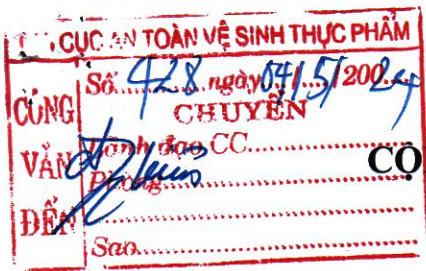 CỤC AN TOÀN VỆ SINH THỰC PHẨM
CÔNG VĂN ĐẾN
Số 428 ngày 04/5/2024
CHUYỂN
Lãnh đạo CC
CỘ
Phòng
Sao